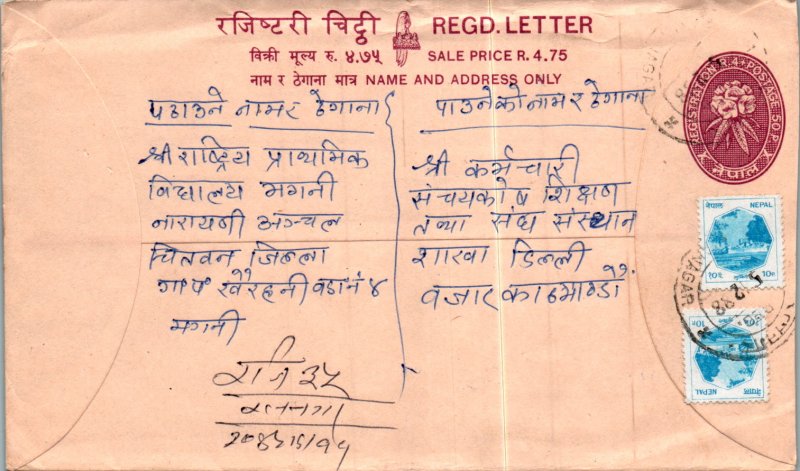 रजिष्टरी चिट्ठी REGD. LETTER
विक्री मूल्य रु. ४.७५ SALE PRICE R. 4.75
नाम र ठेगाना मात्र NAME AND ADDRESS ONLY
REGISTRATION R.4+POSTAGE 50P.
पठाउने नाम र ठेगाना
श्री राष्ट्रिय प्राथमिक
विद्यालय भगनी
नारायणी अञ्चल
चितवन जिल्ला
गा० पं० खैरहनी वडा नं ४
भगनी
पाउनेको नाम र ठेगाना
श्री कर्मचारी
संचयकोष शिक्षण
तथा संघ संस्थान
शाखा डिल्ली
वजार काठमाण्डौं
रजि ३५
नेपाल NEPAL
१०प. 10P
NAGAR
5 12 88
10P
नेपाल
NEPAL